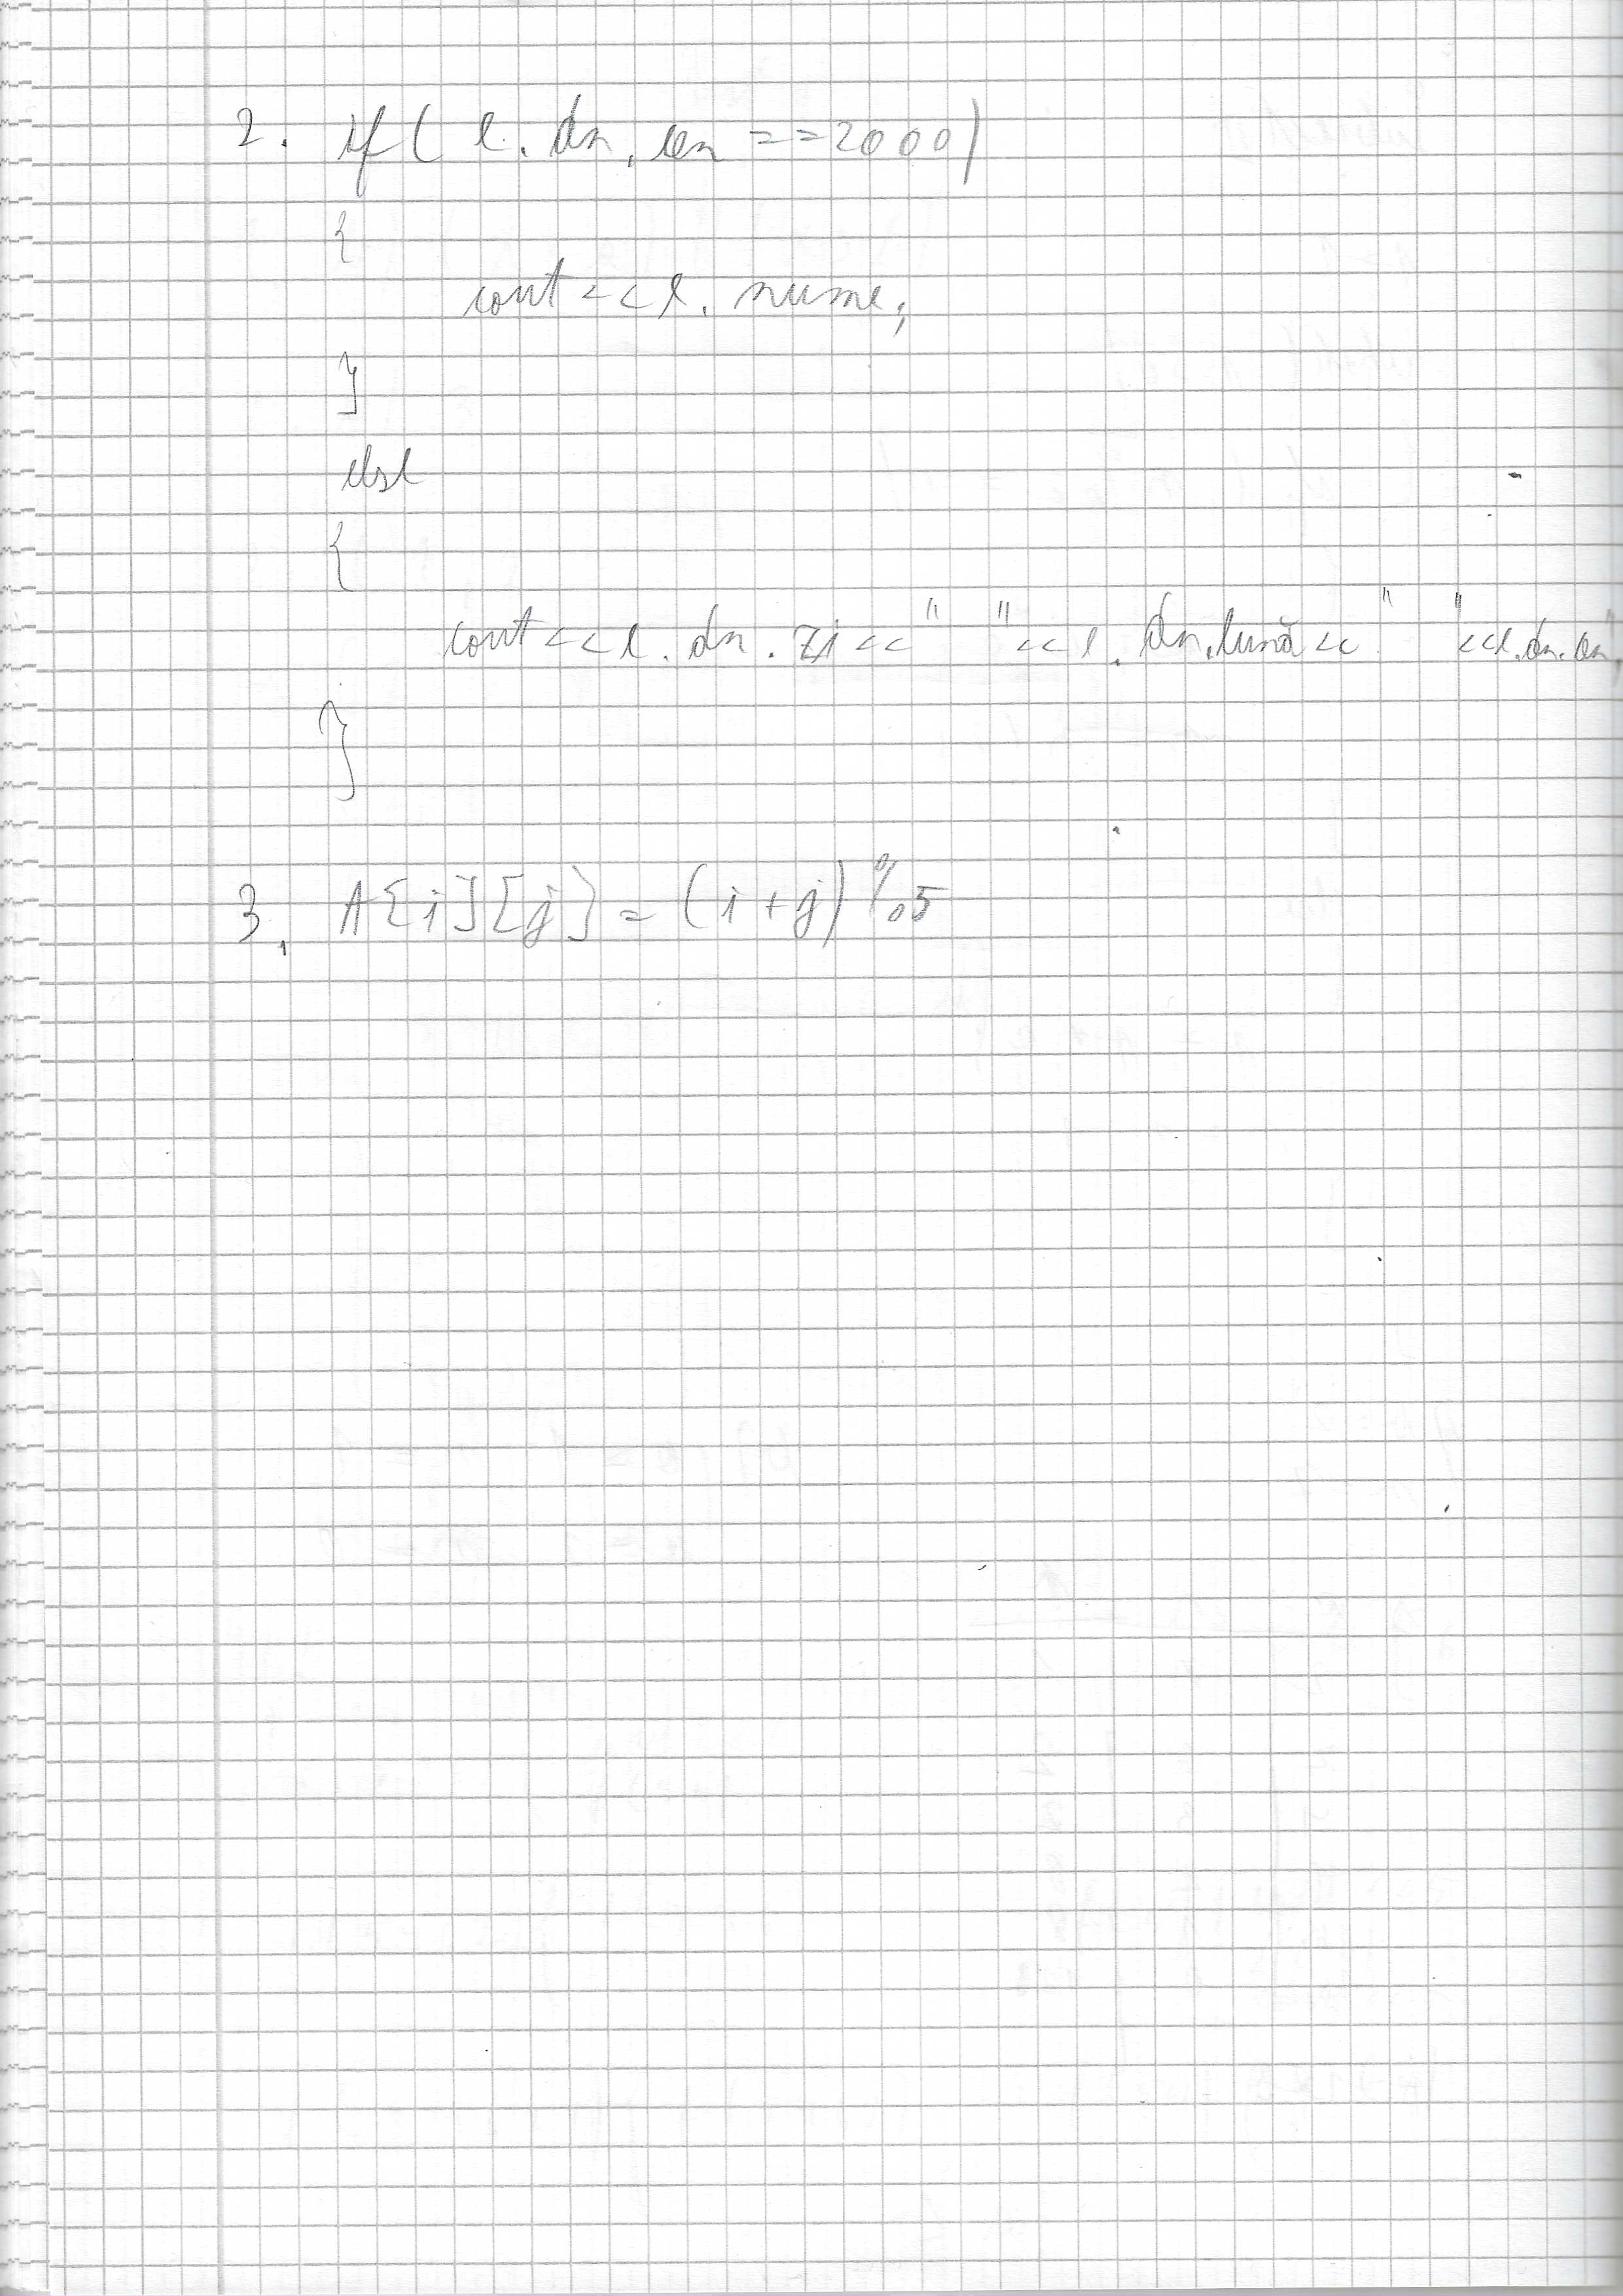 2. if( e.dn.an ==2000)
{
cout<<e.nume;
}
else
{
cout<<e.dn.zi<<" "<<e.dn.lună<<" "<<e.dn.an
}
3. A[i][j]=(i+j)%5